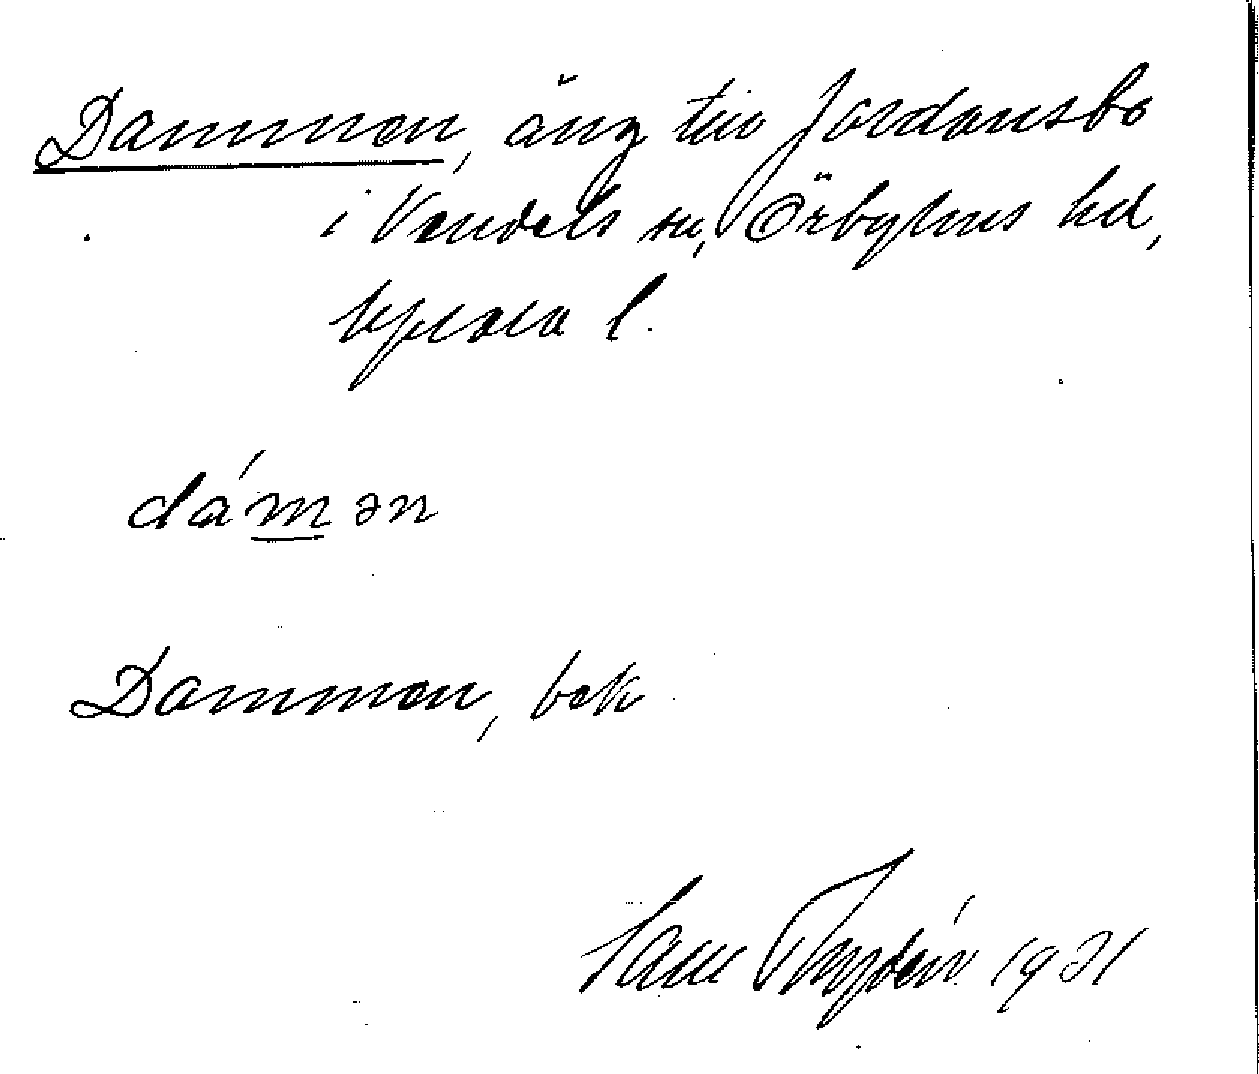 Dammen, äng till Jordansbo
i Vendels sn, Örbyhus hd,
Uppsala l.
dámən
Dammen, bek
1931